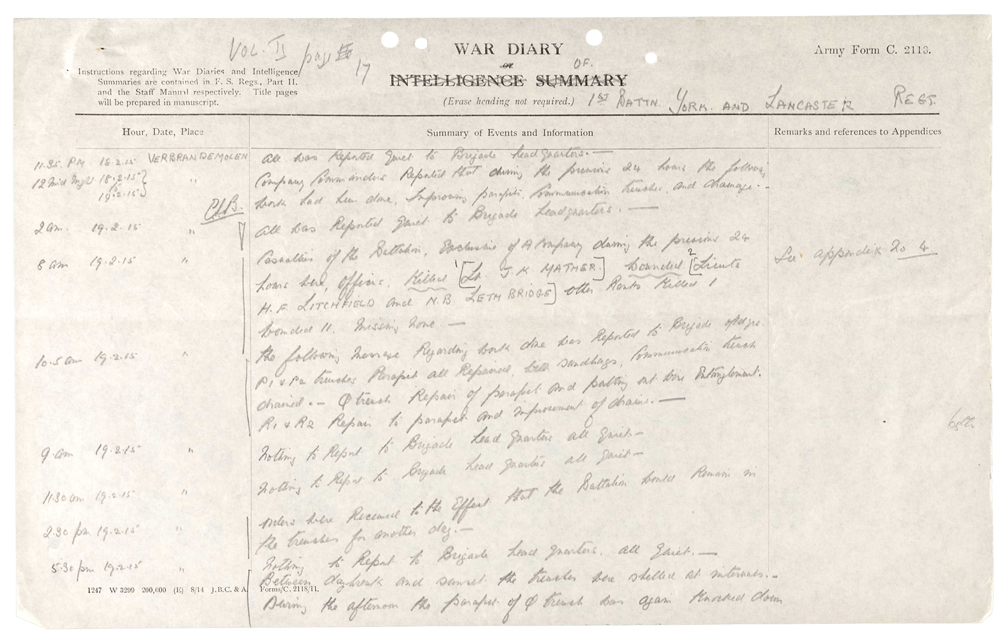 VOL. II page 17
WAR DIARY
Army Form C. 2118.
or OF.
INTELLIGENCE SUMMARY
Instructions regarding War Diaries and Intelligence
Summaries are contained in F. S. Regs., Part II.
and the Staff Manual respectively. Title pages
will be prepared in manuscript.
(Erase heading not required.) 1st BATTN. YORK. AND LANCASTER REGT.
Hour, Date, Place
Summary of Events and Information
Remarks and references to Appendices
11.35 PM 18.2.15 VERBRANDEMOLEN All was Reported Quiet to Brigade Head Quarters.—
12 Mid Night 18.2.15 " Company Commanders Reported that during the previous 24 hours the following
to 19.2.15 work had been done, Improving parapets, Communication trenches, and drainage.-
2 am. 19.2.15 " All was Reported Quiet to Brigade Headquarters.—
8 am 19.2.15 " Casualties of the Battalion Exclusive of A Company during the previous 24
See appendix No 4
hours were, Officers, Killed 1 [Lt. J K MATHER] wounded 2 [Lieuts
H. F. LITCHFIELD and N.B LETHBRIDGE] other Ranks Killed 1
Wounded 11. Missing None.—
10.5 am 19.2.15 " the following message Regarding work done was Reported to Brigade
P1 & P2 trenches Parapet all Repaired, with sandbags, Communication trench
drained.— Q trench Repairs of parapet and putting out wire Entanglement.
R1 & R2 Repair to parapet and improvement of drains.—
9 am 19.2.15 " Nothing to Report to Brigade Head Quarters all quiet—
11.30 am 19.2.15 " Nothing to Report to Brigade Head Quarters all quiet—
2.30 pm 19.2.15 " Orders were Received to the Effect that the Battalion would Remain in
the trenches for another day.—
5.30 pm 19.2.15 " Nothing to Report to Brigade Head Quarters. all Quiet.—
Between daybreak and sunset the trenches were shelled at intervals.-
1247 W 3299 200,000 (E) 8/14 J.B.C. & A. Forms/C. 2118/11.
During the afternoon the parapet of Q trench was again Knocked down